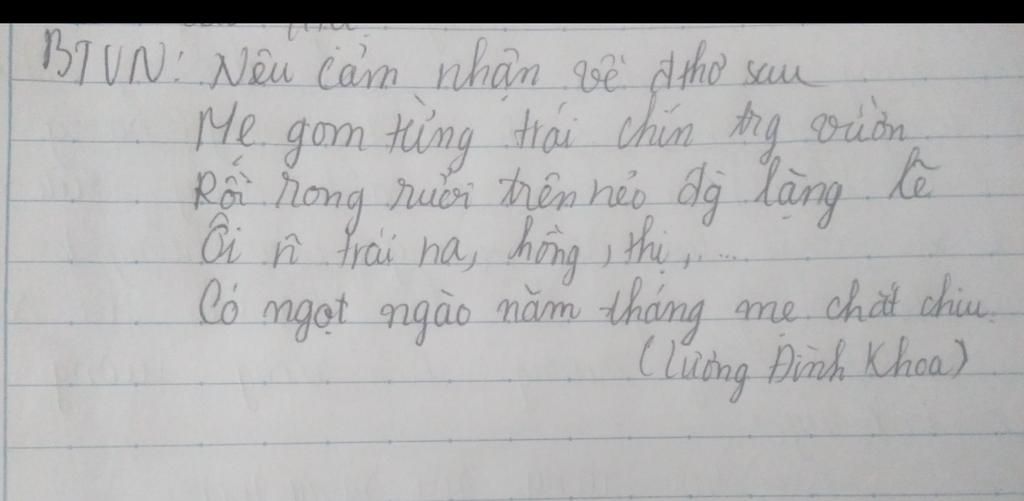 BTVN: Nêu cảm nhận về đthơ sau
Mẹ gom từng trái chín trg vườn
Rồi rong ruổi trên nẻo đg lặng lẽ
Ôi n~ trái na, hồng, thị,...
Có ngọt ngào năm tháng mẹ chắt chiu.
(Lương Đình Khoa)